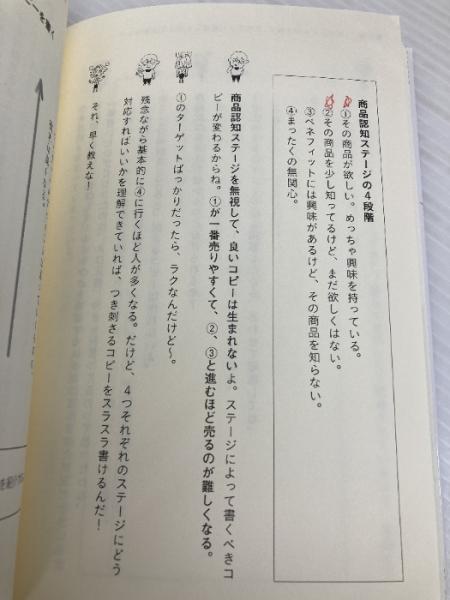 商品認知ステージの4段階
①その商品が欲しい。めっちゃ興味を持っている。
②その商品を少し知ってるけど、まだ欲しくはない。
③ベネフィットには興味があるけど、その商品を知らない。
④まったくの無関心。
商品認知ステージを無視して、良いコピーは生まれないよ。ステージによって書くべきコ
ピーが変わるからね。①が一番売りやすくて、②、③と進むほど売るのが難しくなる。
①のターゲットばっかりだったら、ラクなんだけど〜。
残念ながら基本的に④に行くほど人が多くなる。だけど、4つそれぞれのステージにどう
対応すればいいかを理解できていれば、つき刺さるコピーをスラスラ書けるんだ！
それ、早く教えな！